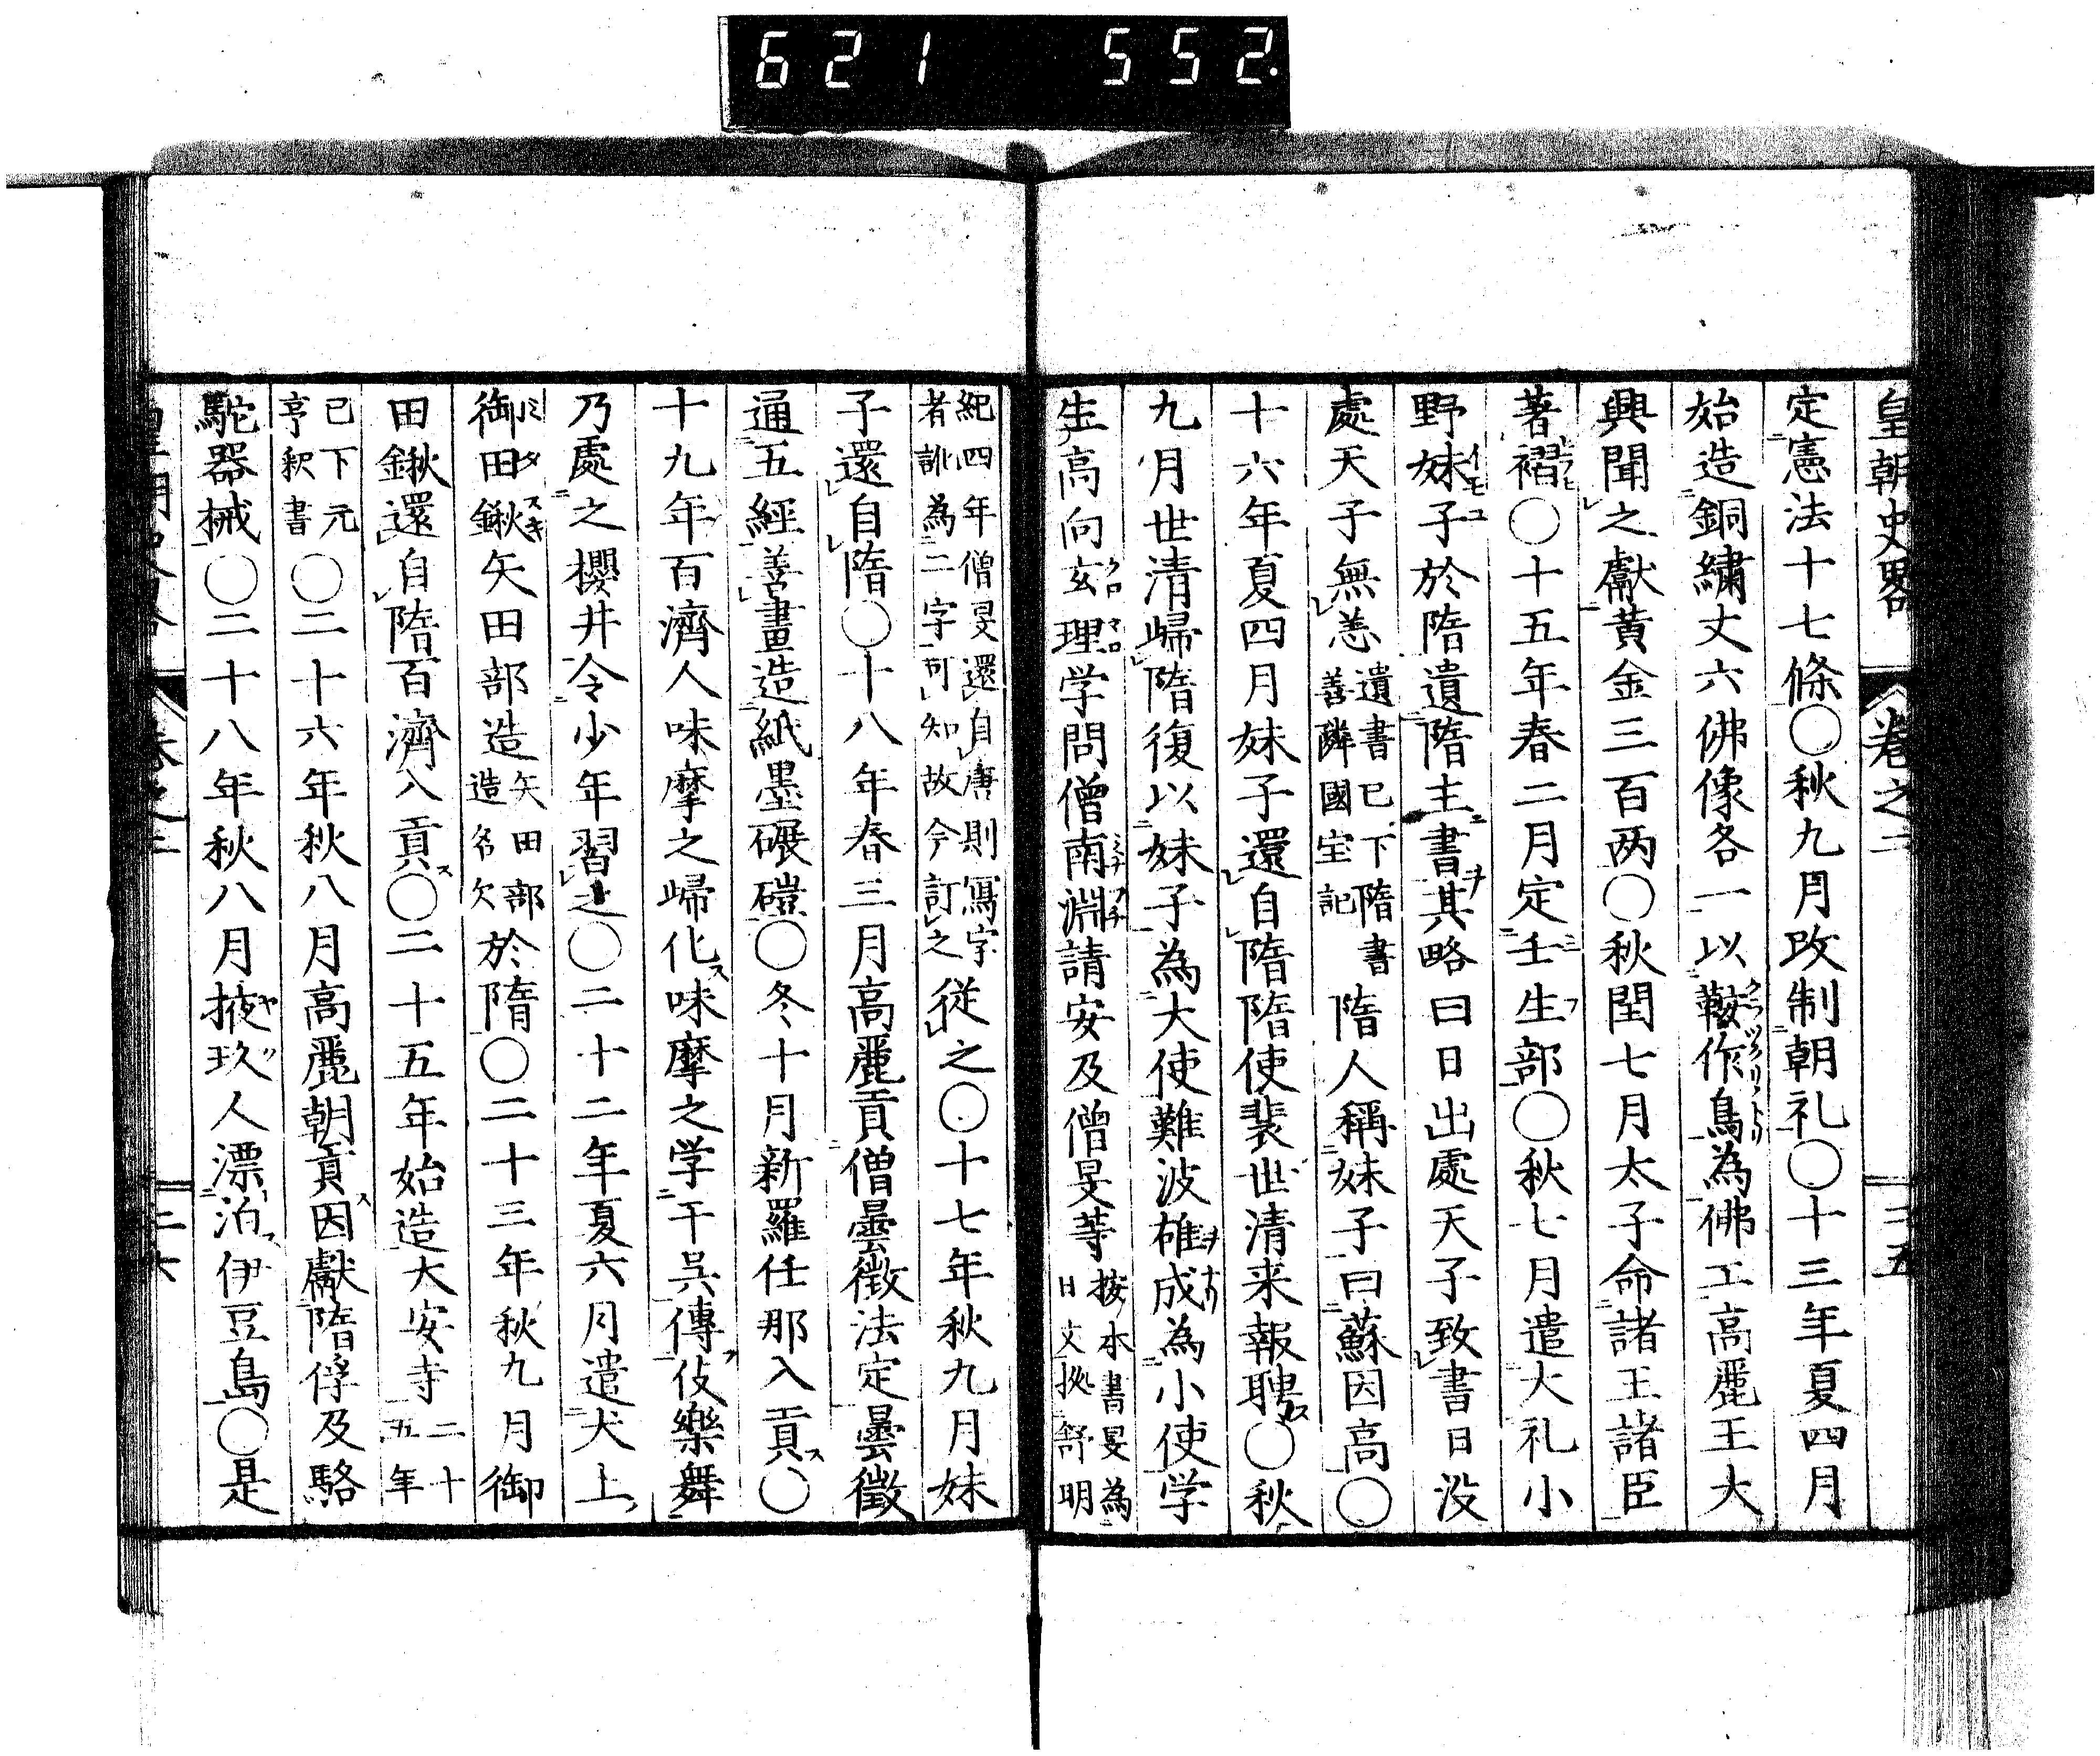 621 552.
皇朝史畧 卷之二 二十五
定憲法十七條〇秋九月改制朝礼〇十三年夏四月
始造銅繡丈六佛像各一以鞍作鳥為佛工高麗王大
興聞之獻黄金三百两〇秋閏七月太子命諸王諸臣
著褶〇十五年春二月定壬生部〇秋七月遣大礼小
野妹子於隋遺隋主書其略曰日出處天子致書日没
處天子無恙遺書已下隋書善隣國宝記隋人稱妹子曰蘇因高〇
十六年夏四月妹子還自隋隋使裴世清来報聘〇秋
九月世清歸隋復以妹子為大使難波雄成為小使学
生高向玄理学問僧南淵請安及僧旻等按本書旻為日文拠舒明
紀四年僧旻還自唐則寫字者訛為二字可知故今訂之從之〇十七年秋九月妹
子還自隋〇十八年春三月高麗貢僧曇徵法定曇徵
通五經善畫造紙墨碾磑〇冬十月新羅任那入貢〇
十九年百濟人味摩之歸化味摩之学于呉傳伎樂舞
乃處之櫻井令少年習之〇二十二年夏六月遣犬上
御田鍬矢田部造矢田部造名欠於隋〇二十三年秋九月御
田鍬還自隋百濟入貢〇二十五年始造大安寺二十五年
已下元亨釈書〇二十六年秋八月高麗朝貢因獻隋俘及駱
駝器械〇二十八年秋八月掖玖人漂泊伊豆島〇是